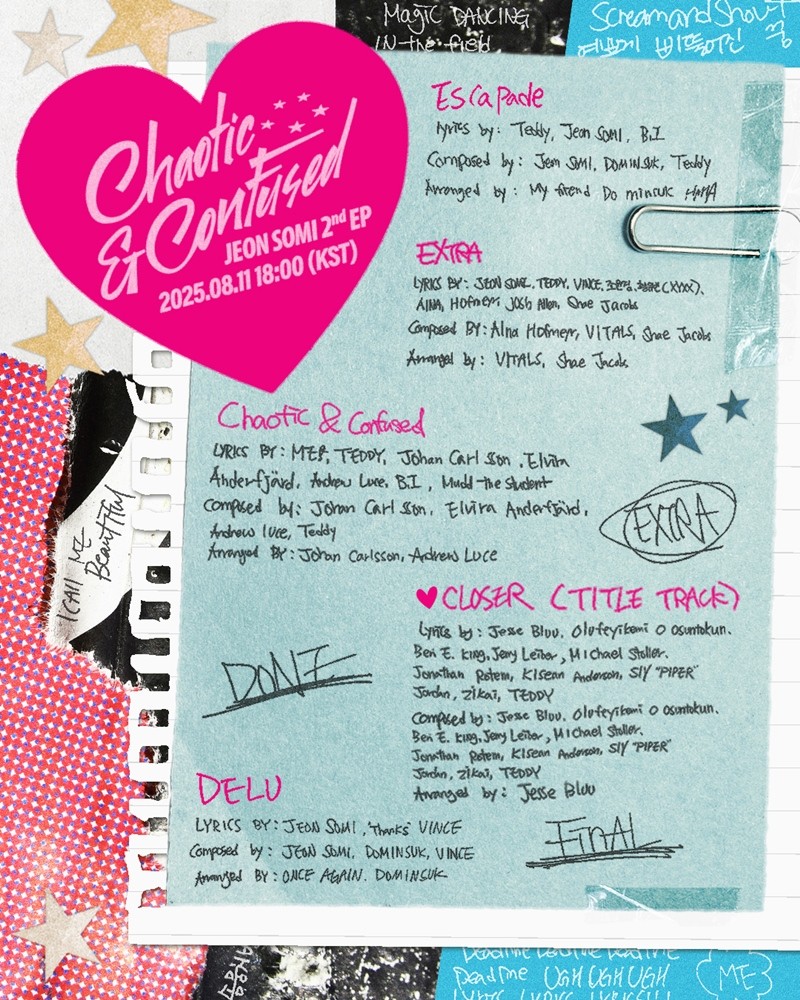 MAGIC DANCING
IN the field
Scream and Shout
예쁘게 비뚤어진
Chaotic
& Confused
JEON SOMI 2nd EP
2025.08.11 18:00 (KST)
Escapade
lyrics by: Teddy, Jeon SOMI, B.I
Composed by: Jeon SOMI, DOMINSUK, Teddy
Arranged by: My friend Dominsuk HAHA
EXTRA
LYRICS BY: JEON SOMI, TEDDY, VINCE, (XYXX),
AINA, Hofmeyr, Josh Allen, Shae Jacobs
Composed BY: AINA Hofmeyr, VITALS, Shae Jacobs
Arranged by: VITALS, Shae Jacobs
Chaotic & Confused
LYRICS BY: ME!, TEDDY, Johan Carlsson, Elvira
Anderfjärd, Andrew Luce, B.I, Mudd the student
Composed by: Johan Carlsson, Elvira Anderfjärd,
Andrew luce, Teddy
Arranged BY: Johan Carlsson, Andrew Luce
EXTRA
I CAll ME
BeautIful
♥ CLOSER (TITLE TRACK)
Lyrics by: Jesse Bluu, Olufeyikemi O Osuntokun,
Ben E. King, Jerry Leiber, Michael Stoller,
Jonathan Rotem, Kisean Anderson, SlY "PIPER"
Jordan, Zikai, TEDDY
Composed by: Jesse Bluu, Olufeyikemi O Osuntokun,
Ben E. King, Jerry Leiber, Michael Stoller,
Jonathan Rotem, Kisean Anderson, SlY "PIPER"
Jordan, Zikai, TEDDY
Arranged by: Jesse Bluu
DONE
DELU
LYRICS BY: JEON SOMI, "Thanks" VINCE
Composed by: JEON SOMI, DOMINSUK, VINCE
Arranged BY: ONCE AGAIN. DOMINSUK
FinAL
Deadline UGH UGH UGH
ME